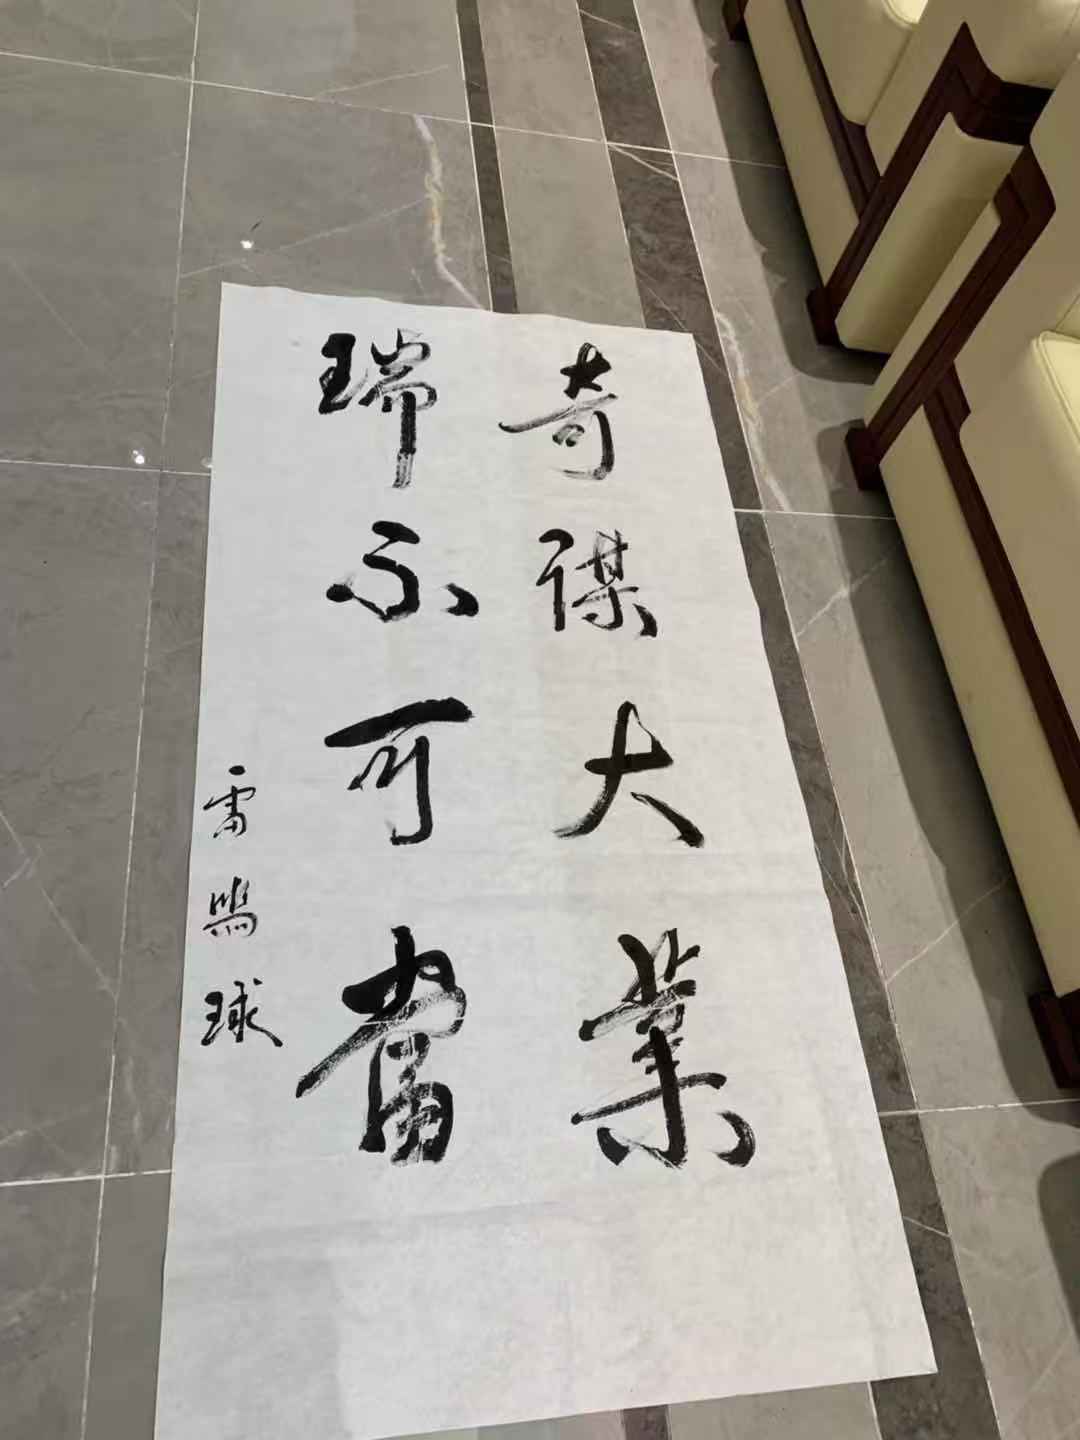 奇谋大業
瑞不可當
雷鸣球